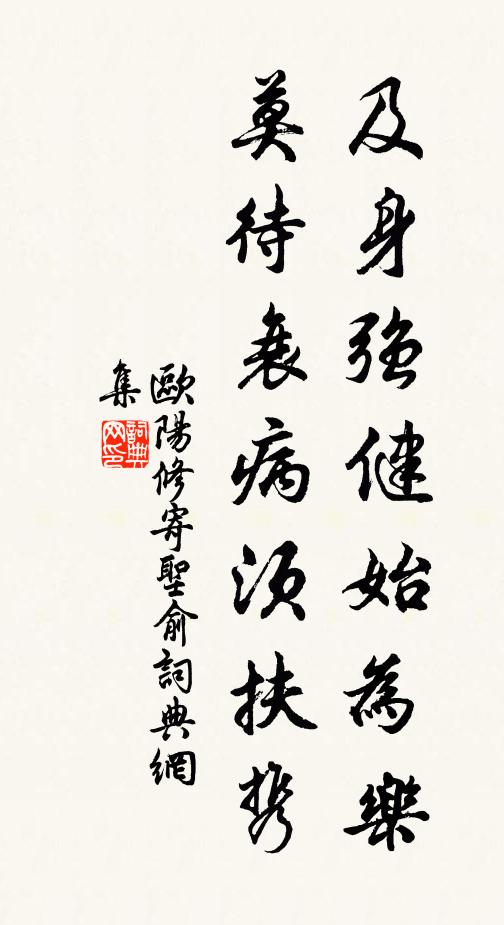 及身強健始為樂
莫待衰病須扶携
歐陽修寄聖俞詞典網
集
詞典网印